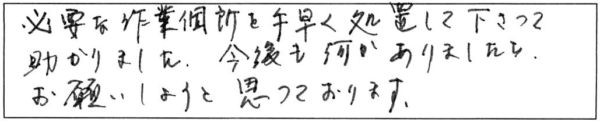 必要な作業個所を手早く処置して下さって
助かりました. 今後も何かありましたら.
お願いしようと思っております.